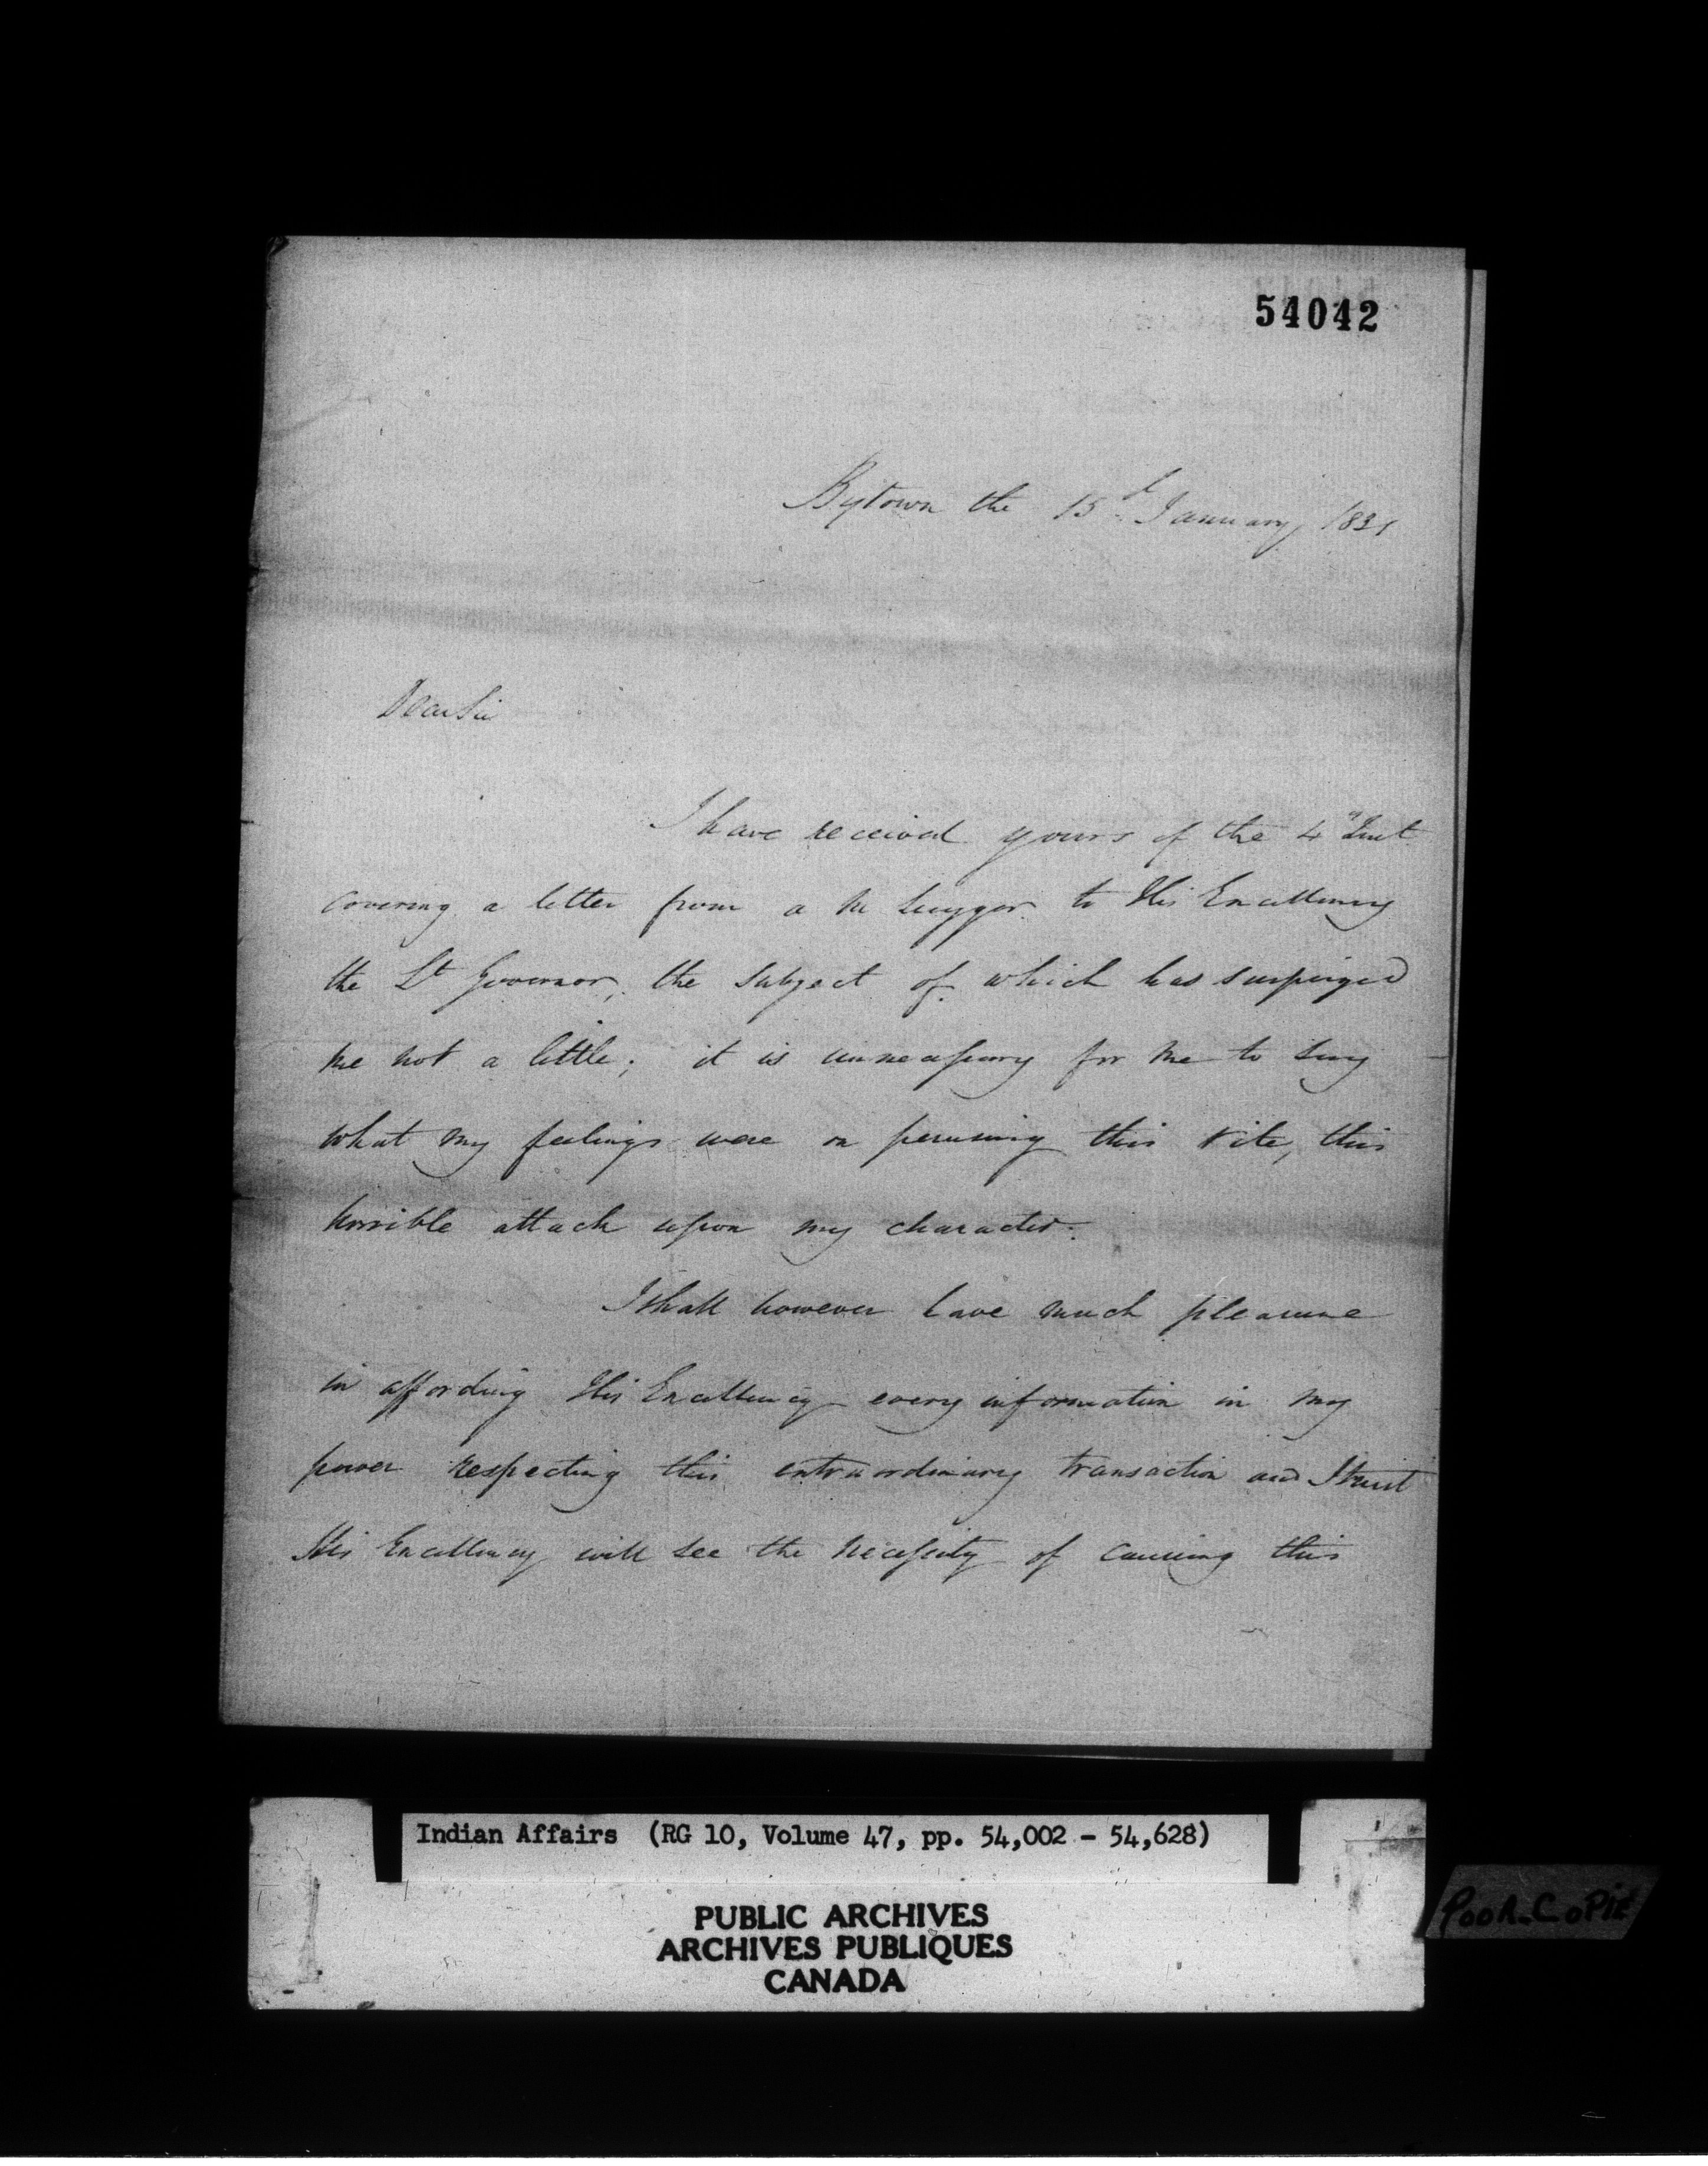 54042
Bytown the 15th January 1831
Dear Sir
I have received yours of the 4th Inst
covering a letter from a Mr to His Excellency
the Lt Governor, the subject of which has surprized
me not a little; it is unnecessary for me to say
what my feelings were on perusing this vile, this
horrible attack upon my character.
I shall however have much pleasure
in affording His Excellency every information in my
power respecting this extraordinary transaction and I trust
His Excellency will see the necessity of causing this
Indian Affairs (RG 10, Volume 47, pp. 54,002 - 54,628)
PUBLIC ARCHIVES
ARCHIVES PUBLIQUES
CANADA
POOR COPIE